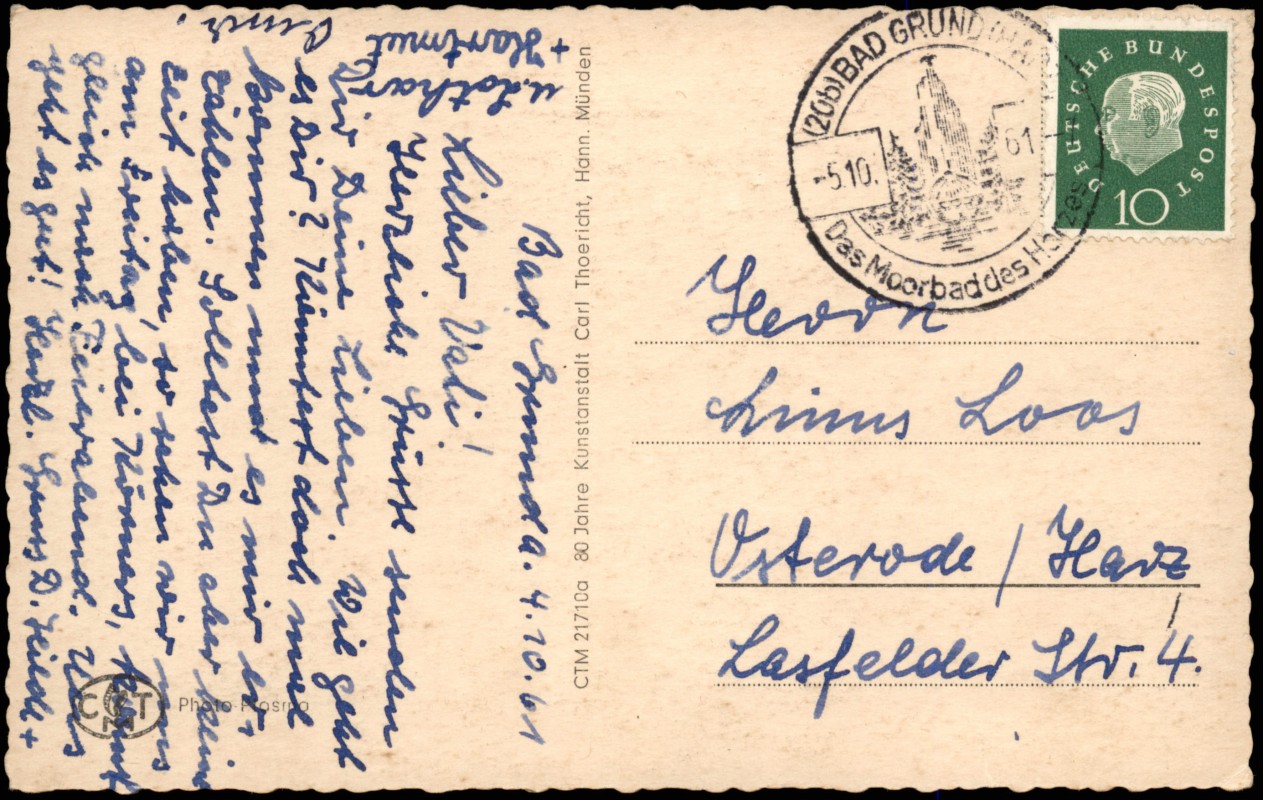 Bad Grund a. 4.10.61
Lieber Vati!
Herzliche Grüsse senden
Dir Deine Lieben. Wie geht
es Dir? Kümmert doch mal
kommen und es mir er-
zählen. Solltest Du aber keine
Zeit haben, so sehen wir uns
am Freitag, bei Körners,
gleich nach Feierabend. Uns
geht es gut! Herzl. Gruss D. Heide +
Omi.
u. Lothar
+ Hartmut
CTM 21710a 80 Jahre Kunstanstalt Carl Thoericht, Hann. Münden
CTM
Photo
(20b) BAD GRUND (HARZ)
-5.10.
61
Das Moorbad des Harzes
DEUTSCHE BUNDESPOST
10
Herrn
Linus Loos
Osterode / Harz
Lasfelder Str. 4.